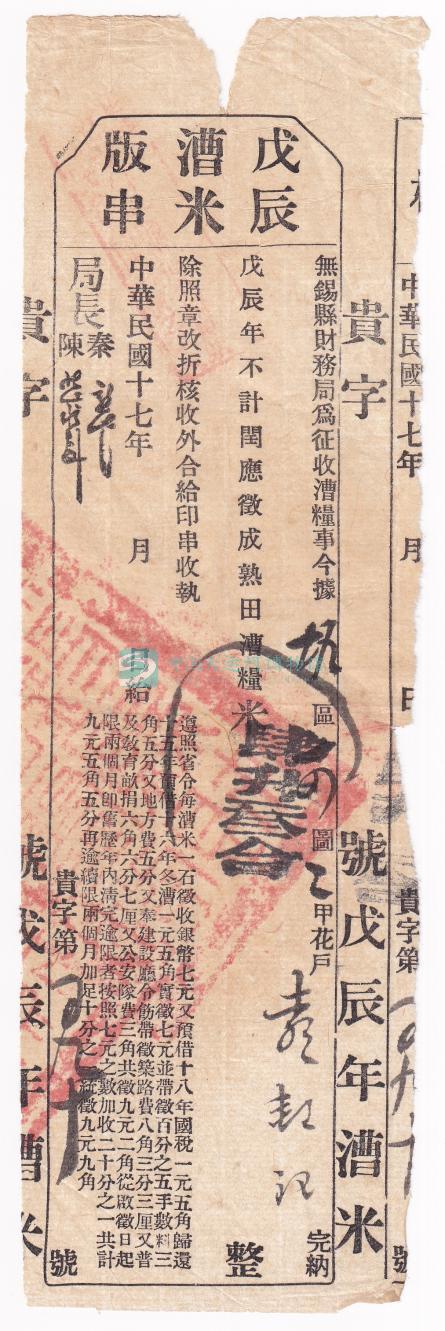 戊辰
漕米
版串
無錫縣財務局爲征收漕糧事今據
區
圖
甲花戶
完納
戊辰年不計閏應徵成熟田漕糧米
肆升叁合
整
除照章改折核收外合給印串收執
中華民國十七年　月　日給
局長
秦
陳
遵照省令每漕米一石徵收銀幣七元又預借十八年國稅一元五角歸還
十五年預借十六年冬漕一元五角實徵七元並帶徵百分之五手數料三
角五分又地方費五分又奉建設廳令飭帶徵築路費八角三分三厘又普
及教育畝捐六角六分七厘又公安隊費三角共徵九元二角從啟徵日起
限兩個月卽舊歷年內清完逾限者按照七元之數加收二十分之一共計
九元五角五分再逾續限兩個月加足十分之一統徵九元九角
貴字第
號
貴字
號戊辰年漕米
中華民國十七年　月　日
貴字第
號
貴字
號戊辰年漕米